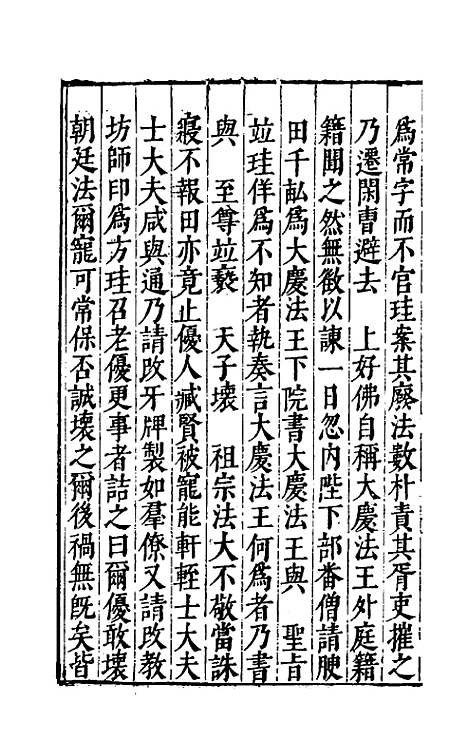 爲常字而不官珪案其廢法數朴責其胥吏摧之
乃遷閑曹避去　上好佛自稱大慶法王外庭籍
籍聞之然無徵以諫一日忽内陛下部番僧請腴
田千畝爲大慶法王下院書大慶法王與　聖旨
竝珪佯爲不知者執奏言大慶法王何爲者乃書
與　至尊竝褻　天子壞　祖宗法大不敬當誅
寢不報田亦竟止優人臧賢被寵能軒輊士大夫
士大夫咸與通乃請改牙牌製如羣僚又請改教
坊師印爲方珪召老優更事者詰之曰爾優敢壞
朝廷法爾寵可常保否誠壞之爾後禍無旣矣皆